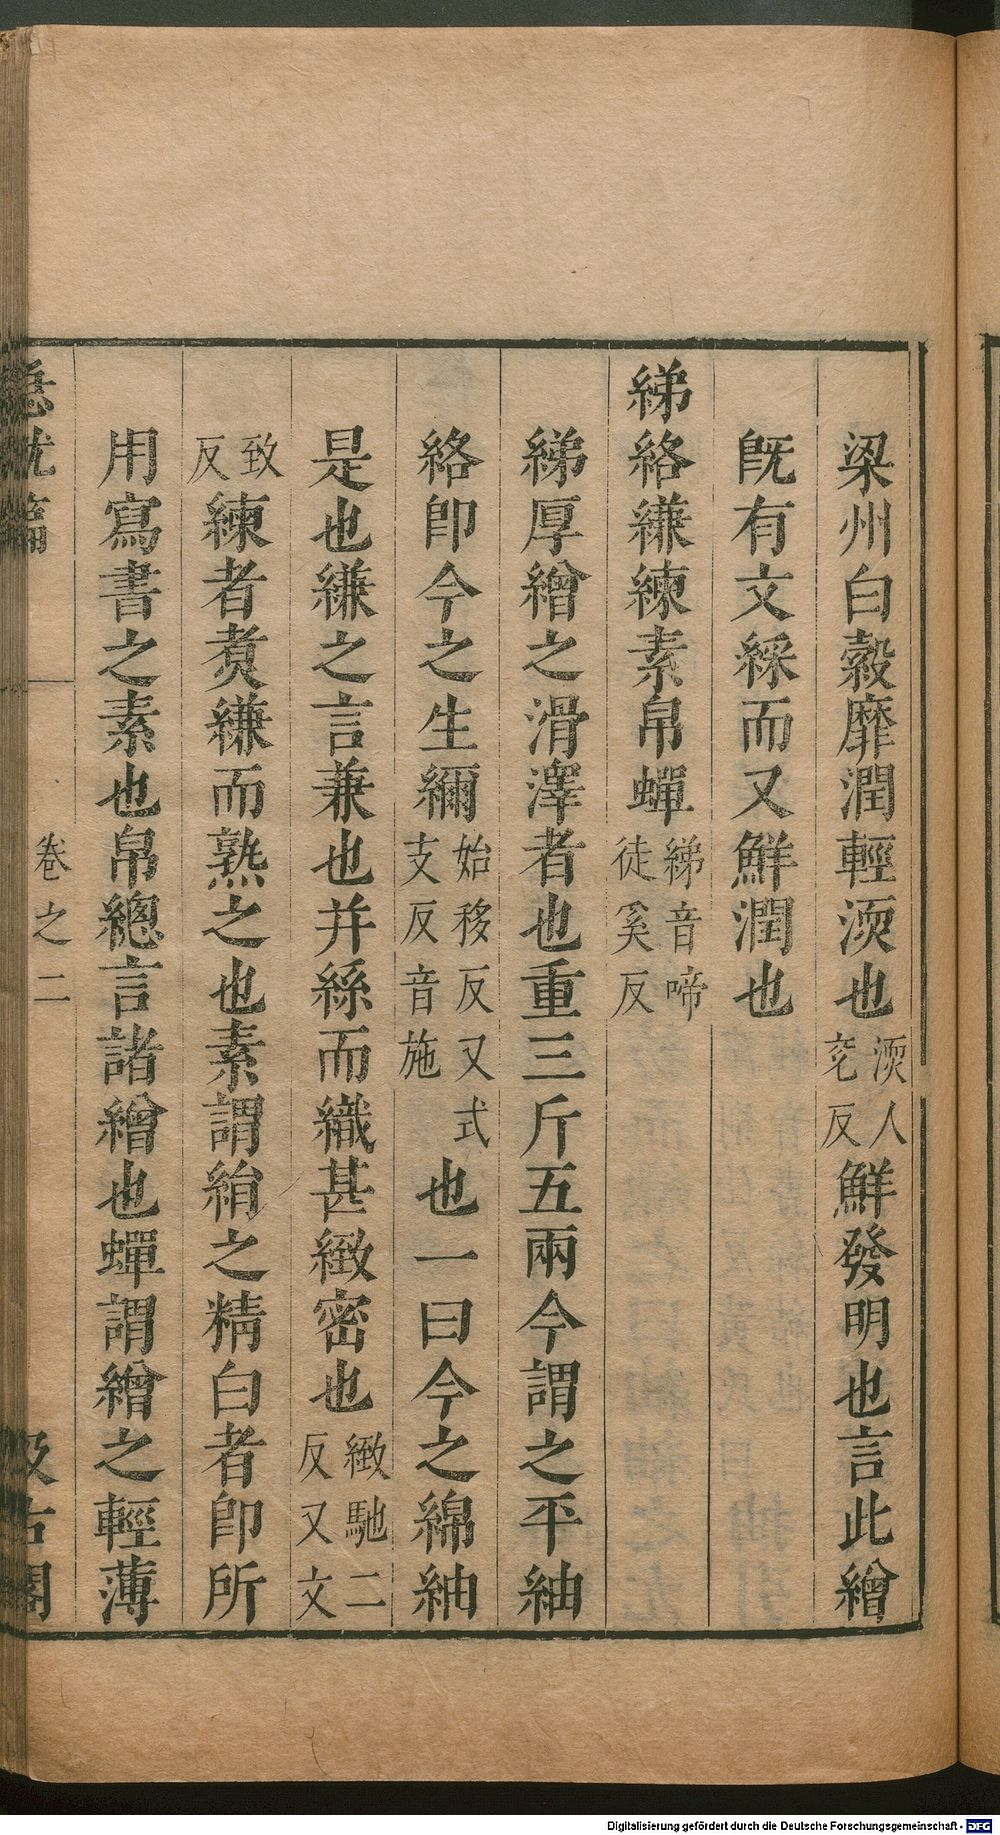 梁州白縠靡潤輕渜也渜人兖反鮮發明也言此繒
旣有文綵而又鮮潤也
綈絡縑練素帛蟬綈音啼徒奚反
綈厚繒之滑澤者也重三斤五兩今謂之平紬
絡卽今之生䌤始移反又式支反音施也一曰今之綿紬
是也縑之言兼也并絲而織甚緻密也緻馳二反又文
致反練者煑縑而熟之也素謂絹之精白者卽所
用寫書之素也帛總言諸繒也蟬謂繒之輕薄
急就篇 卷之二 汲古閣
Digitalisierung gefördert durch die Deutsche Forschungsgemeinschaft - DFG